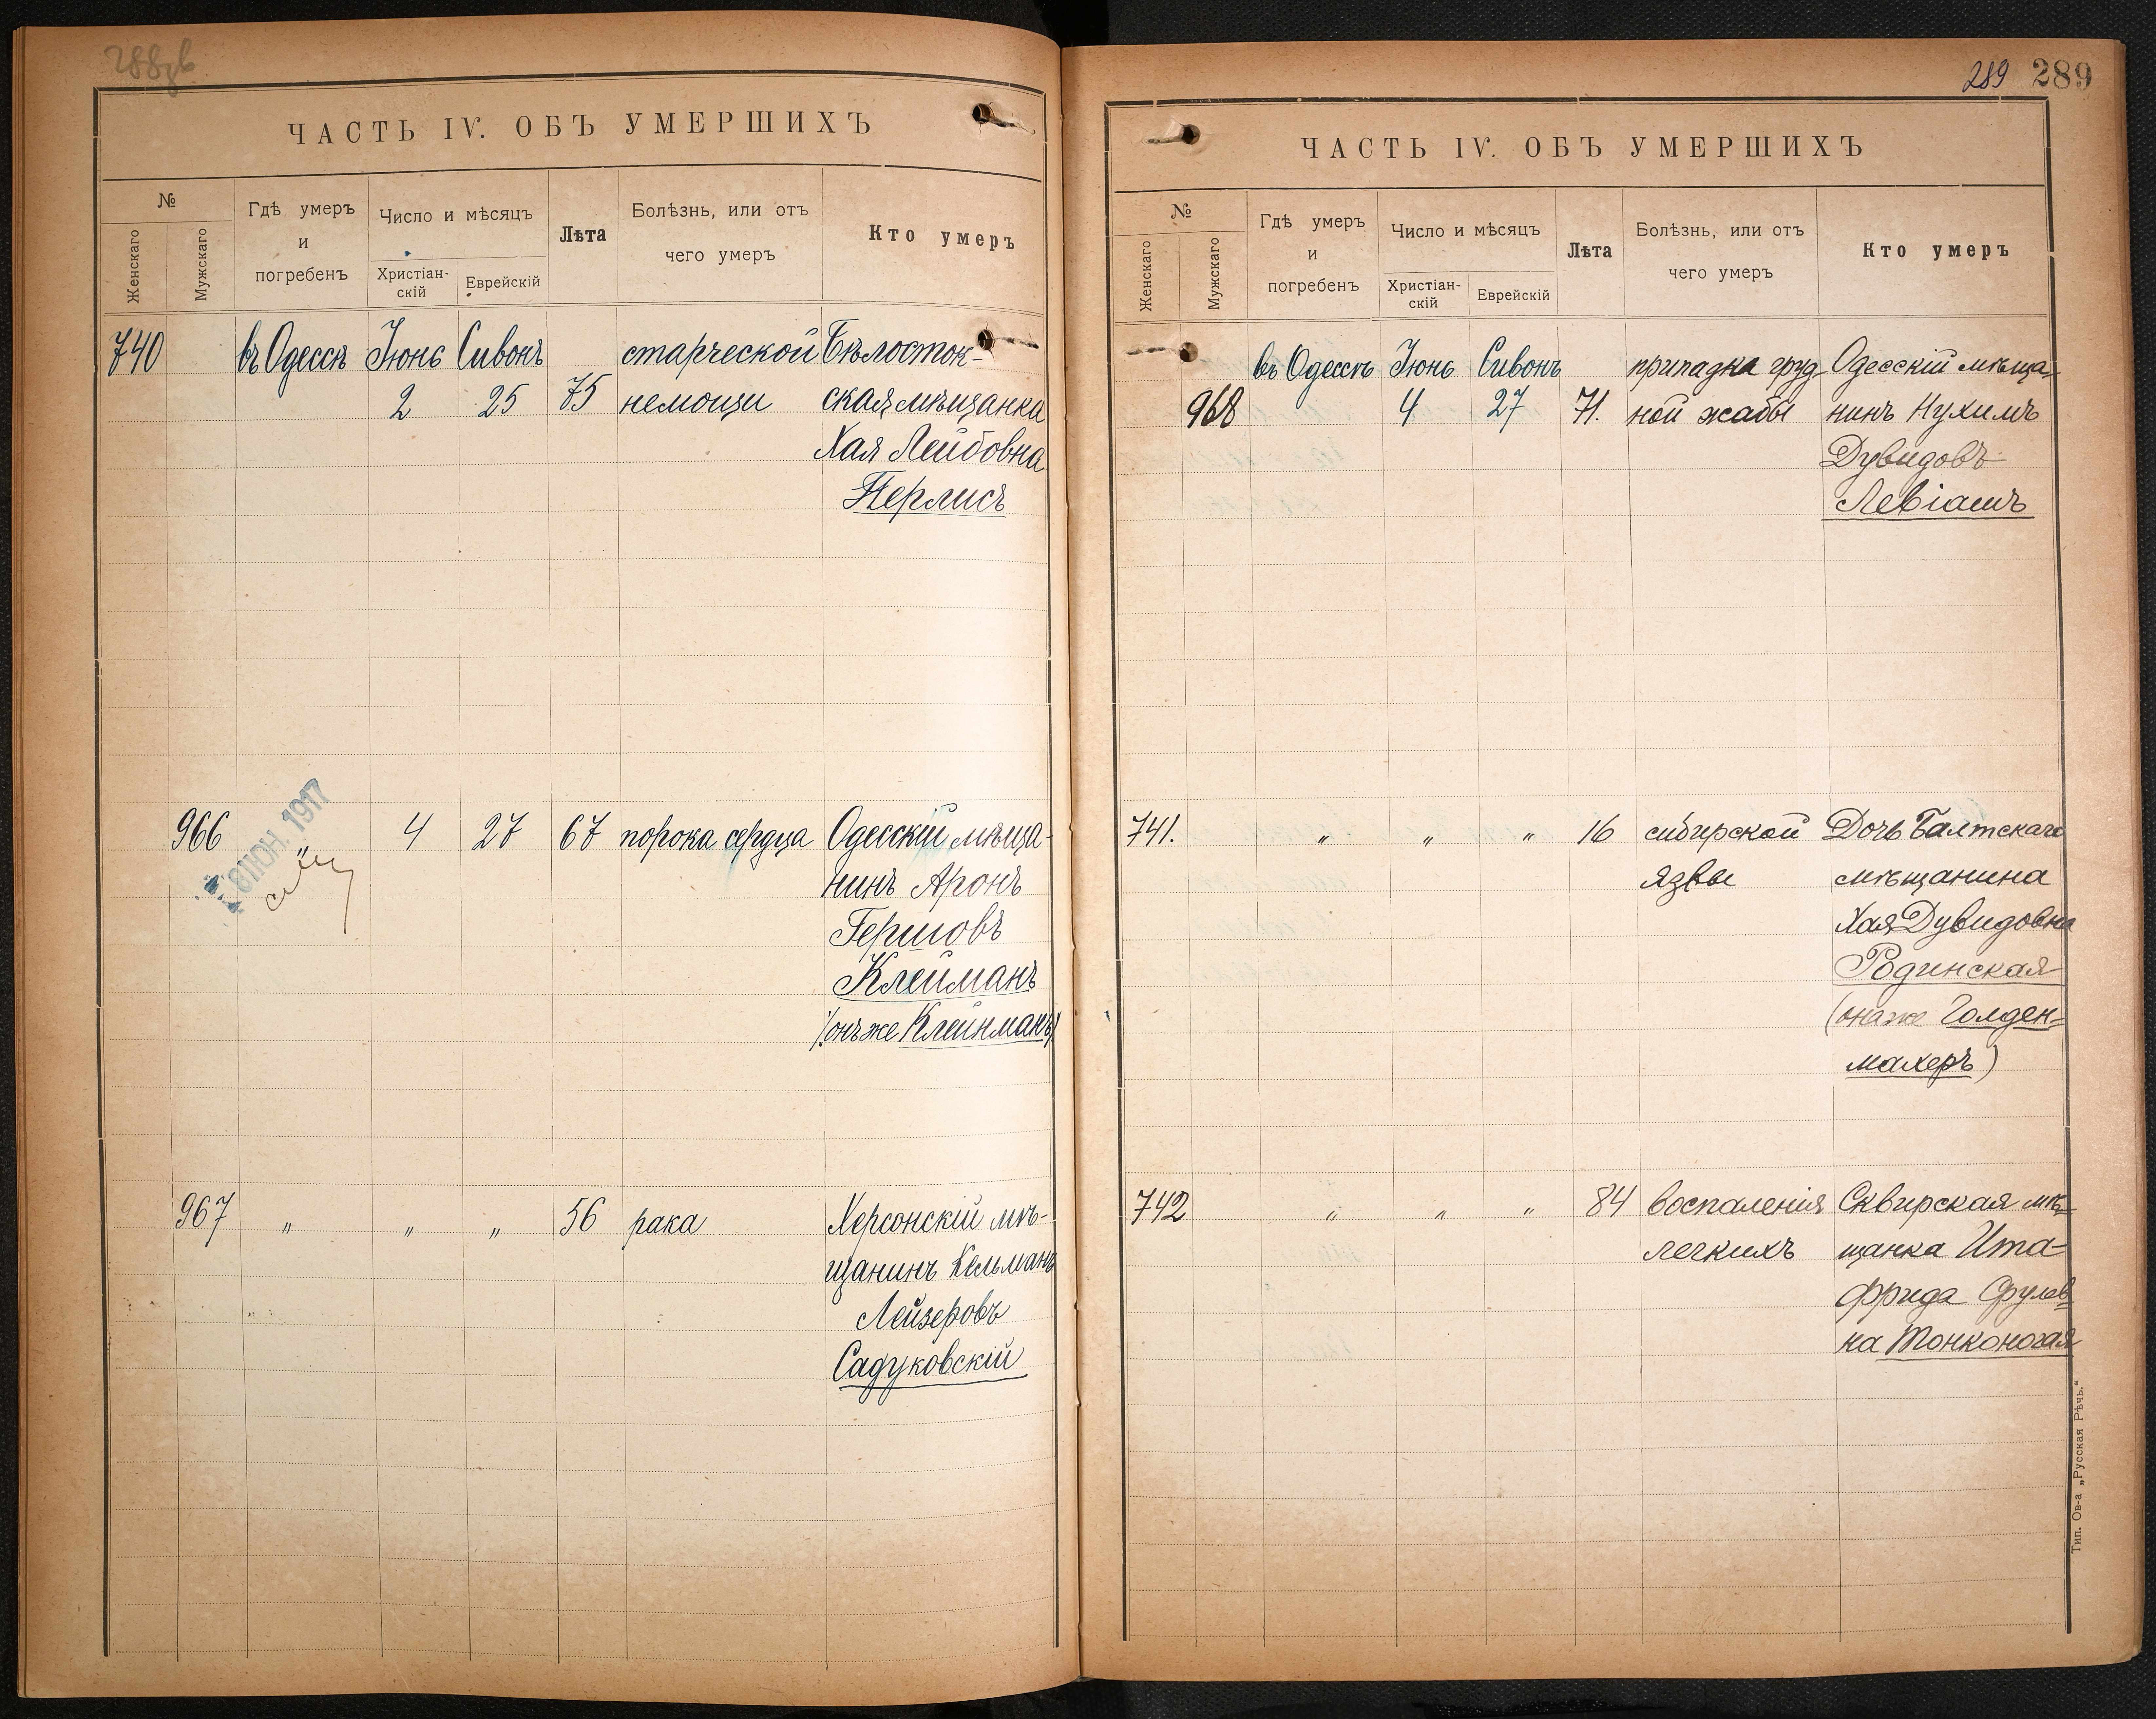 288 об
ЧАСТЬ IV. ОБЪ УМЕРШИХЪ
№
Женскаго
Мужскаго
Гдѣ умеръ
и
погребенъ
Число и мѣсяцъ
Христіан-
скій
Еврейскій
Лѣта
Болѣзнь, или отъ
чего умеръ
Кто умеръ
740 въ Одессѣ Іюнь Сивонъ старческой Бѣлосток-
2 25 75 немощи ская мѣщанка
Хая Лейбовна
Перлисъ
966 „ 4 27 67 порока сердца Одесскій мѣща-
нинъ Аронъ
Гершовъ
Клейманъ
(онъ же Клейнманъ)
ІЮН. 1917
967 „ „ „ 56 рака Херсонскій мѣ-
щанинъ Кельманъ
Лейзеровъ
Садуковскій
289 289
ЧАСТЬ IV. ОБЪ УМЕРШИХЪ
№
Женскаго
Мужскаго
Гдѣ умеръ
и
погребенъ
Число и мѣсяцъ
Христіан-
скій
Еврейскій
Лѣта
Болѣзнь, или отъ
чего умеръ
Кто умеръ
въ Одессѣ Іюнь Сивонъ припадка груд- Одесскій мѣща-
968 4 27 71. ной жабы нинъ Нухимъ
Дувидовъ
Левіашъ
741. „ „ „ 16 сибирской Дочь Балтскаго
язвы мѣщанина
Хая Дувидовна
Родинская
(она же Голден-
махеръ)
742 „ „ „ 84 воспаленія Сквирская мѣ-
легкихъ щанка Ита-
Фрида Срулев-
на Тонконогая
Тип. Ов-а „Русская Рѣчь.“